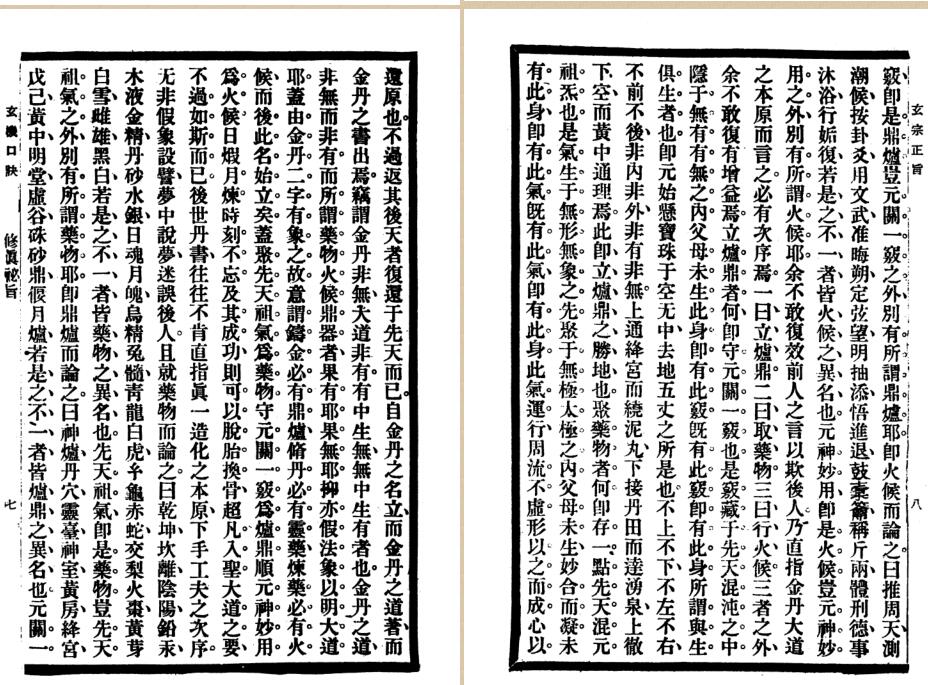 還原也不過返其後天者復還于先天而已自金丹之名立而金丹之道著而
金丹之書出焉竊謂金丹非無大道非有有中生無無中生有者也金丹之道
非無而非有而所謂藥物火候鼎器者果有耶果無耶抑亦假法象以明大道
耶蓋由金丹二字有象之故意謂鑄金必有鼎爐脩丹必有靈藥煉藥必有火
候而後此名始立矣蓋聚先天祖氣爲藥物守元關一竅爲爐鼎順元神妙用
爲火候日煆月煉時刻不忘及其成功則可以脫胎換骨超凡入聖大道之要
不過如斯而已後世丹書往往不肯直指眞一造化之本原下手工夫之次序
无非假象設譬夢中說夢迷誤後人且就藥物而論之曰乾坤坎離陰陽鉛汞
木液金精丹砂水銀日魂月魄烏精兔髓青龍白虎龜赤蛇交梨火棗黃芽
白雪雌雄黑白若是之不一者皆藥物之異名也先天祖氣即是藥物豈先天
祖氣之外別有所謂藥物耶即鼎爐而論之曰神爐丹穴靈臺神室黃房絳宮
戊己黃中明堂虛谷硃砂鼎偃月爐若是之不一者皆爐鼎之異名也元關一
玄機口訣 修眞祕旨 七
玄宗正旨 八
竅即是鼎爐豈元關一竅之外別有所謂鼎爐耶即火候而論之曰推周天測
潮候按卦爻用文武准晦朔定弦望明抽添悟進退鼓橐籥稱斤兩體刑德事
沐浴行姤復若是之不一者皆火候之異名也元神妙用即是火候豈元神妙
用之外別有所謂火候耶余不敢復效前人之言以欺後人乃直指金丹大道
之本原而言之必有次序焉一曰立爐鼎二曰取藥物三曰行火候三者之外
余不敢復有增益焉立爐鼎者何即守元關一竅也是竅藏于先天混沌之中
隱于無有有無之內父母未生此身即有此竅既有此竅即有此身所謂與生
俱生者也即元始懸寶珠于空无中去地五丈之所是也不上不下不左不右
不前不後非內非外非有非無上通絳宮而繞泥丸下接丹田而達湧泉上徹
下空而黃中通理焉此即立爐鼎之勝地也聚藥物者何即存一點先天混元
祖炁也是氣生于無形無象之先聚于無極太極之內父母未生妙合而凝未
有此身即有此氣既有此氣即有此身此氣運行周流不虛形以之而成心以